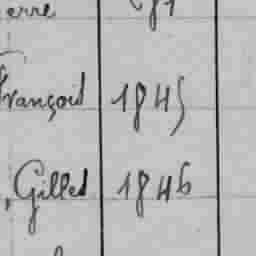 erre
François 1845
Gilles 1846